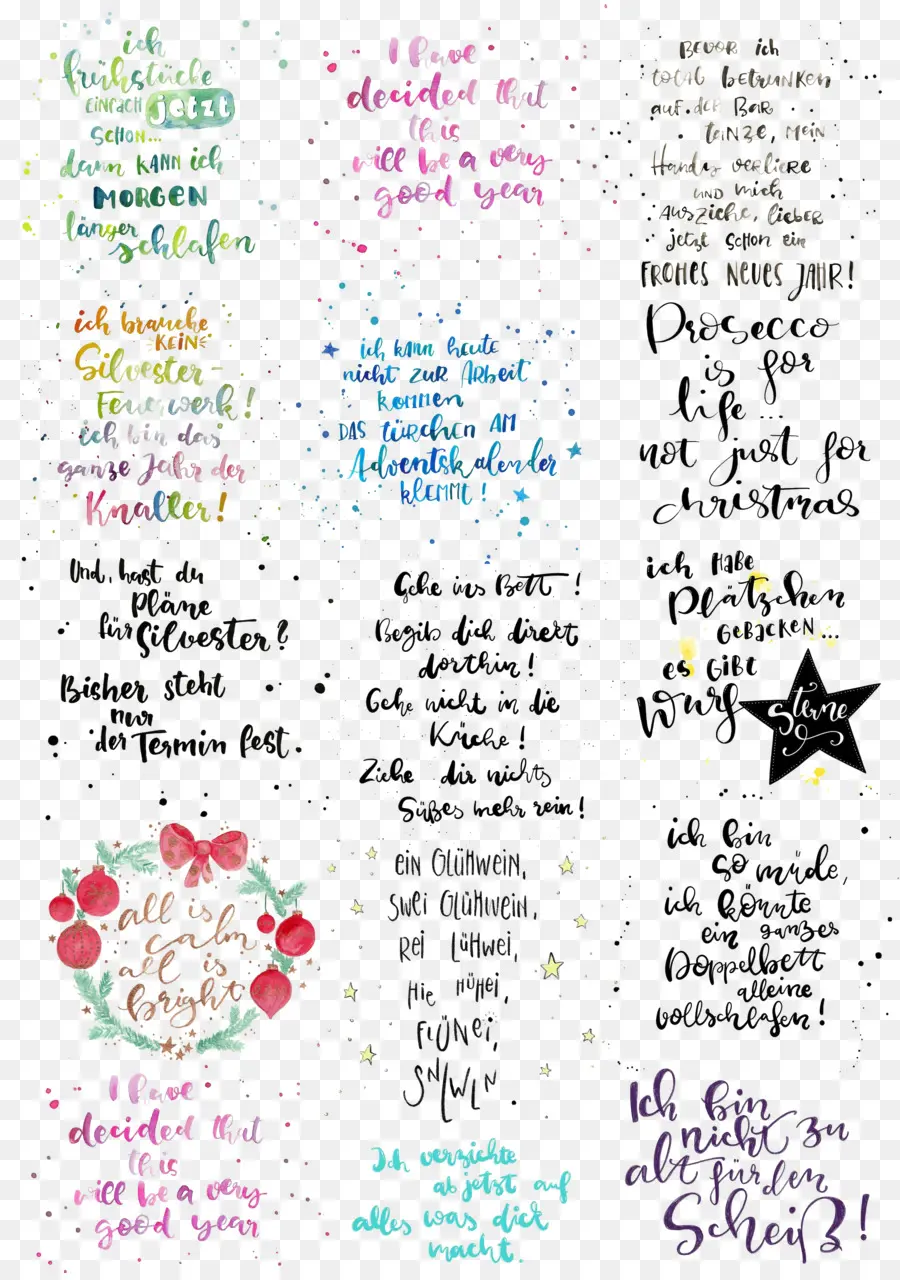 ich
frühstücke
EINFACH jetzt
SCHON...
dann KANN ich
MORGEN
länger
schlafen
I have
decided that
this
will be a very
good year
BEVOR ich
total betrunken
auf der BAR
tanze, mein
Handy verliere
und mich
ausziehe, lieber
jetzt schon ein
FROHES NEUES JAHR!
ich brauche
KEIN
Silvester-
Feuerwerk!
ich bin das
ganze Jahr der
Knaller!
ich kann heute
nicht zur Arbeit
kommen
DAS türchen AM
Adventskalender
klemmt!
Prosecco
is for
life...
not just for
christmas
Und, hast du
Pläne
für Silvester?
Bisher steht
nur
der Termin fest.
Gehe ins Bett!
Begib dich direkt
dorthin!
Gehe nicht in die
Küche!
Ziehe dir nichts
Süßes mehr rein!
ich HABE
Plätzchen
GEBACKEN...
es GIBT
Wurf
Sterne
all is
calm
all is
bright
ein Glühwein,
swei Glühwein,
Rei Lühwei,
Hie Hühei,
FLÜNei,
SNLWLN.
ich bin
so müde,
ich könnte
ein ganzes
Doppelbett
alleine
vollschlafen!
I have
decided that
this
will be a very
good year
Ich verzichte
ab jetzt auf
alles was dick
macht.
Ich bin
nicht zu
alt für den
Scheiß!